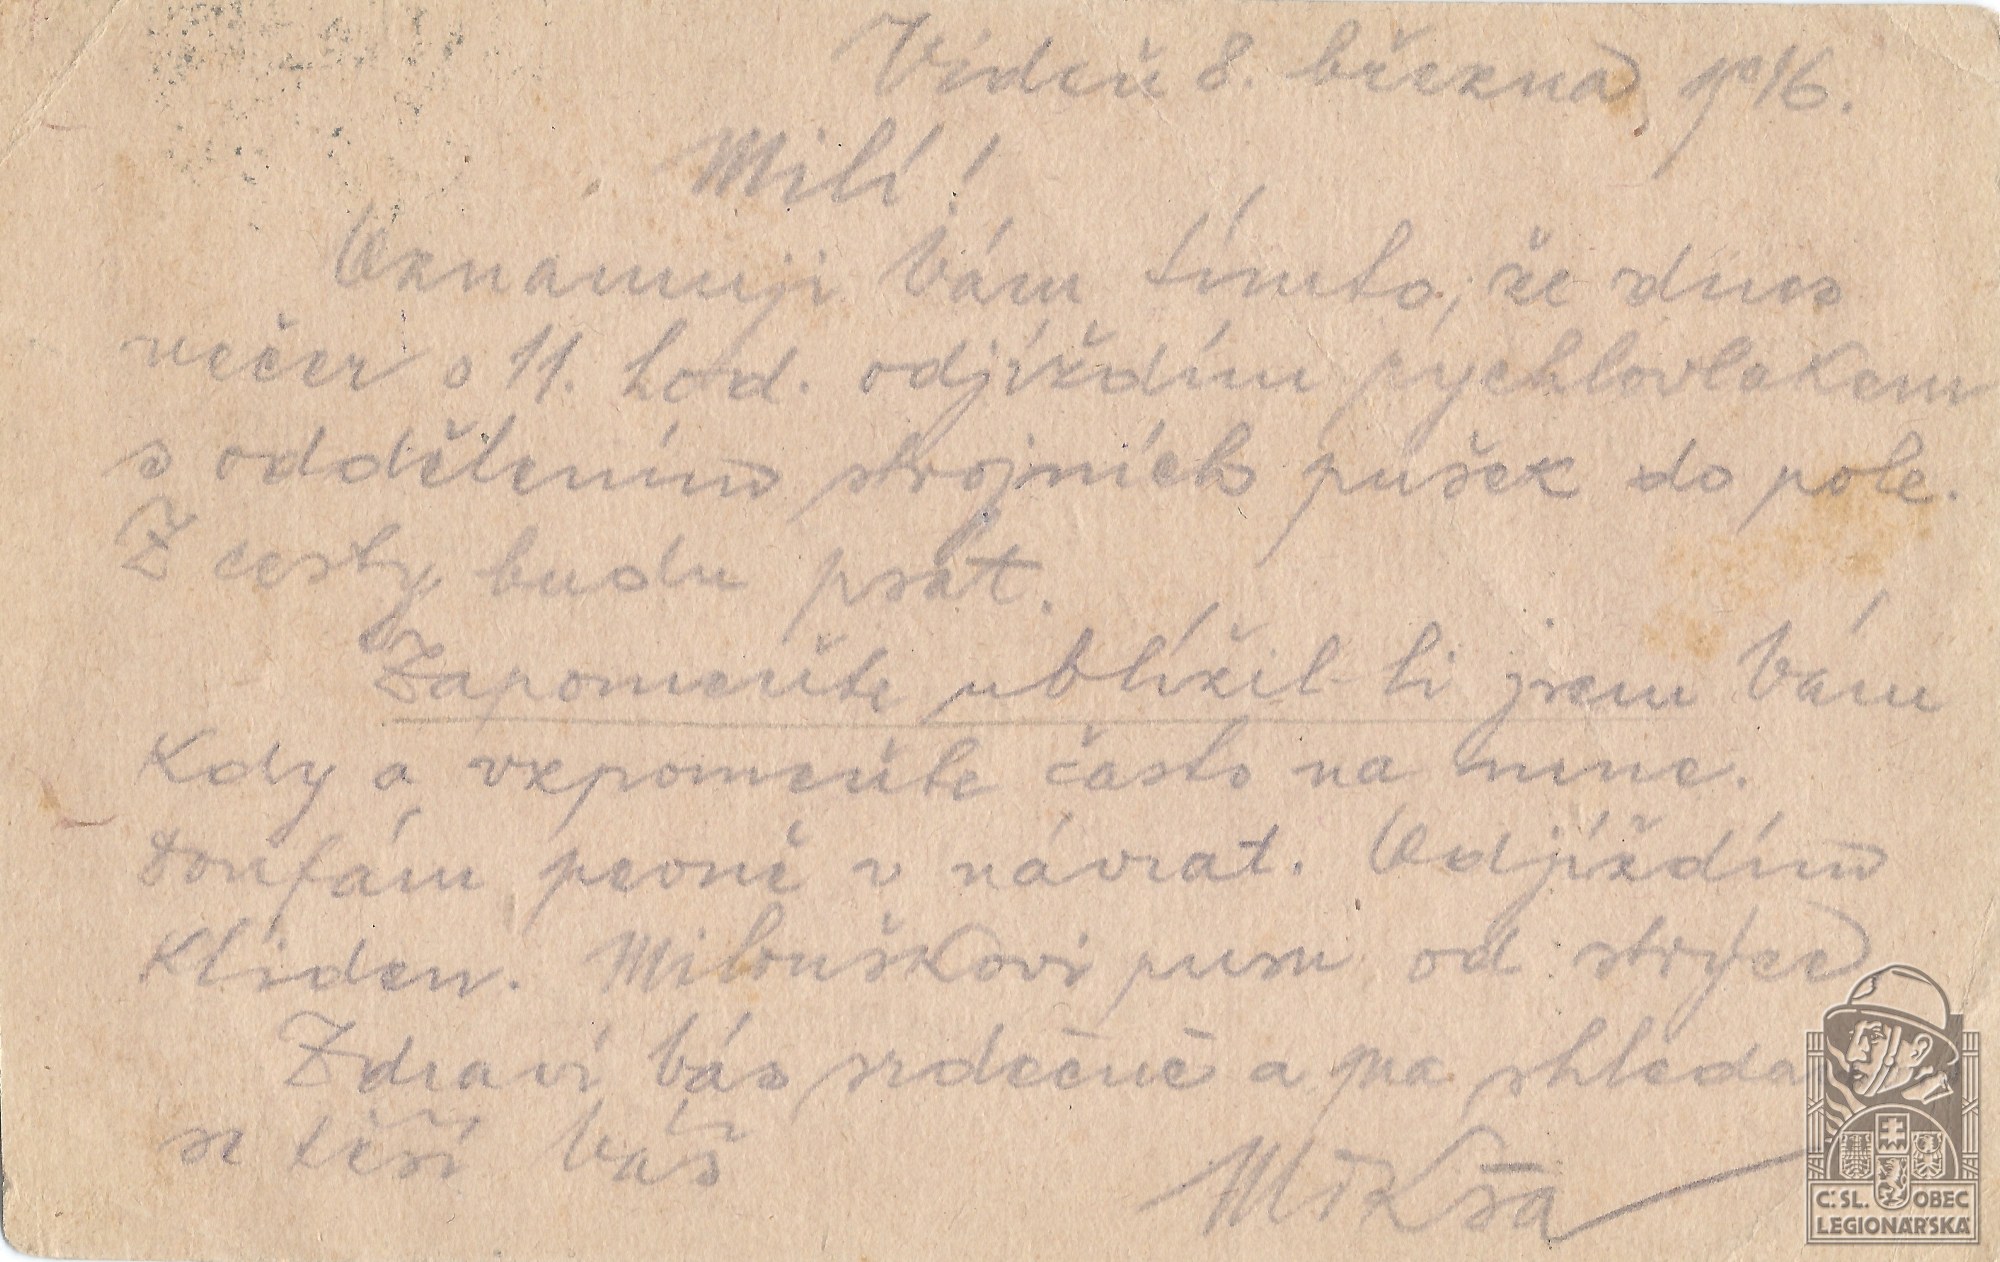 Vídeň 8. března 1916.
Milí!
Oznamuji Vám tímto, že dnes
večer o 11. hod. odjíždím rychlovlakem
s oddělením strojních pušek do pole.
Z cesty budu psát.
Zapomeňte ublížil-li jsem Vám
kdy a vzpomeňte často na mne.
Doufám pevně v návrat. Odjíždím
kliden. Milouškovi pusu od strýce
Zdraví Vás srdečně a na shleda
se těší Váš
Mikša
Č. SL. OBEC
LEGIONÁŘSKÁ